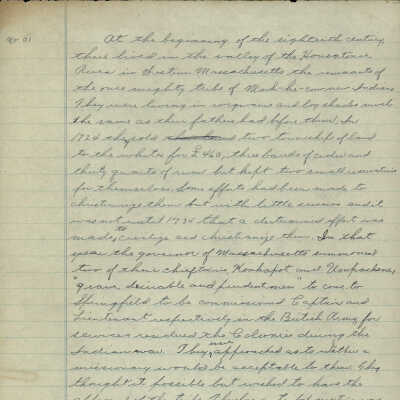 At the beginning of the eighteenth century,
there lived in the valley of the Housatonic
River in Western Massachusetts the remnants of
the once mighty tribe of Muh-he-con-new Indians.
They were living in wigwams and log shacks much
the same as their fathers had before them. In
1724 they sold two townships of land
to the whites for £460, three barrels of cider and
thirty quarts of rum but kept two small reservations
for themselves. Some efforts had been made to
christianize them but with little success and it
was not until 1734 that a determined effort was
made to civilize and christianize them. In that
year the governor of Massachusetts summoned
two of their chieftains, Konkapot and Umpachene,
"grave, desirable and prudent men" to come to
Springfield to be commissioned Captain and
Lieutenant respectively in the British Army for
services rendered the Colonies during the
Indian war. They were approached as to whether a
missionary would be acceptable to them. They
thought it possible but wished to have the